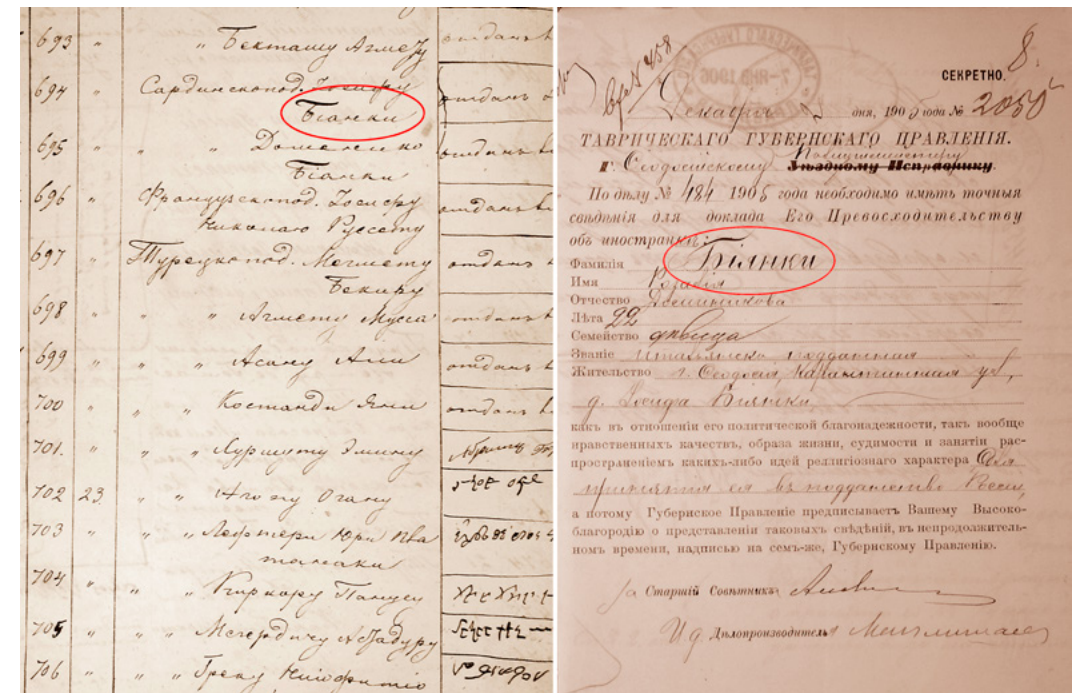 693 " " Бекташу Ахмету отдано
694 Сардинскопод. Іосифу отдано
Біанки
695 " " Доменико отдано
Біанки
696 " Французскопод. Іосифу отдано
Николаю Руссету
697 " Турецкопод. Мегмету отдано
Бекиру
698 " " Ахмету Мусса отдано
699 " " Асану Али отдано
700 " " " Костанди Яни отдано
701. " " Эмину
702 23 " " Огану
703 " " Лефтери Юри
704 " " " Киркору
705 " " "
706 " " " Греку
8.
СЕКРЕТНО.
Декабря дня, 1905 года № 2050
ТАВРИЧЕСКАГО ГУБЕРНСКАГО ПРАВЛЕНІЯ.
Г. Ѳеодосійскому Полицмейстеру Уѣздному Исправнику
По дѣлу № 484 1905 года необходимо имѣть точныя
свѣдѣнія для доклада Его Превосходительству
объ иностранкѣ:
Фамилія Біянки
Имя Розалія
Отчество Доминикова
Лѣта 22
Семейство дѣвица
Званіе итальянская подданная
Жительство г. Ѳеодосія, Карантинная ул,
д. Іосифа Біянки
какъ въ отношеніи его политической благонадежности, такъ вообще
нравственныхъ качествъ, образа жизни, судимости и занятіи рас-
пространеніемъ какихъ-либо идей религіознаго характера для
принятія ея въ подданство Россіи,
а потому Губернское Правленіе предписываетъ Вашему Высоко-
благородію о представленіи таковыхъ свѣдѣній, въ непродолжитель-
номъ времени, надписью на семъ-же, Губернскому Правленію.
За Старшій Совѣтникъ
И д Дѣлопроизводителя